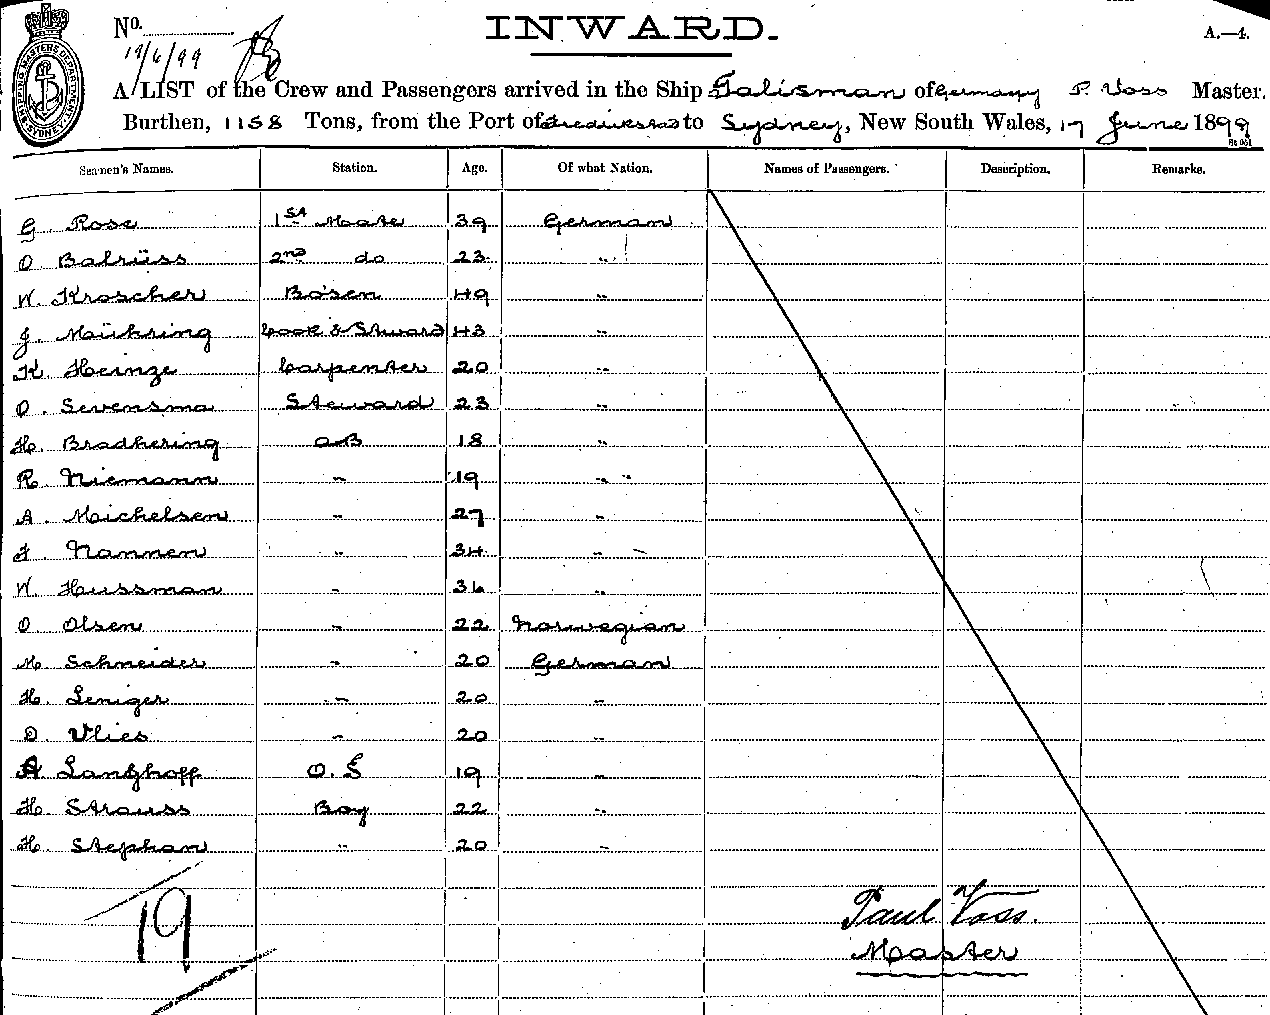 No. INWARD. A.—4.
19/6/99
A LIST of the Crew and Passengers arrived in the Ship Talisman of Germany P. Voss Master.
Burthen, 1158 Tons, from the Port of to Sydney, New South Wales, 17 June 1899
Seamen's Names. Station. Age. Of what Nation. Names of Passengers. Description. Remarks.
G. Rose 1st Mate 39 German
O Balrüss 2nd do 23 "
W. Kroscher Bosen 49 "
J. Mühring Cook & Steward 43 "
K. Heinze Carpenter 20 "
O. Sevensma Steward 23 "
H. Bradhering AB 18 "
R. Niemann " 19 "
A. Michelsen " 27 "
F. Nannen " 34 "
W. Hussman " 36 "
O. Olsen " 22 Norwegian
M. Schneider " 20 German
H. Leniger " 20 "
D Vlies " 20 "
A Langhoff O.S 19 "
H. Strauss Boy 22 "
H. Stephan " 20 "
19
Paul Voss.
Master